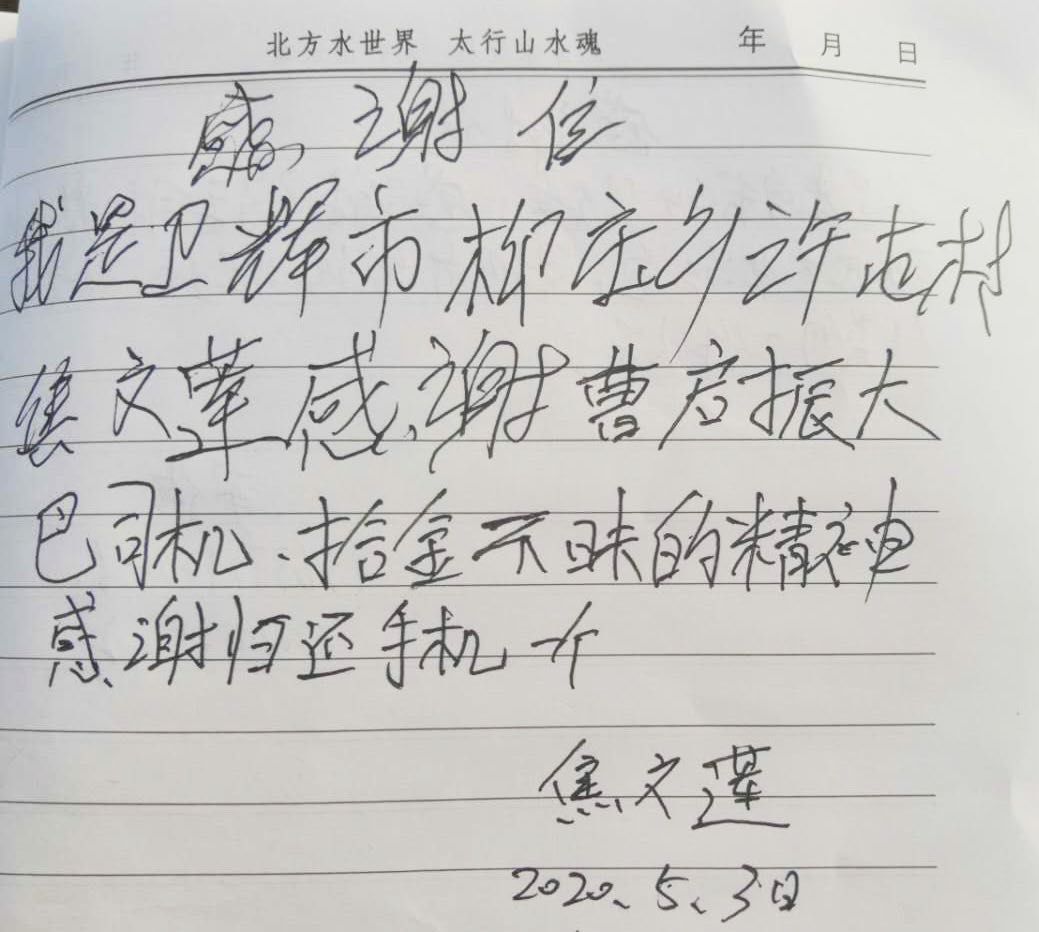 北方水世界 太行山水魂 年 月 日
感谢信
我是卫辉市柳庄乡许屯村
焦文莲感谢曹启振大
巴司机、拾金不昧的精神
感谢归还手机一个
焦文莲
2020、5、3日